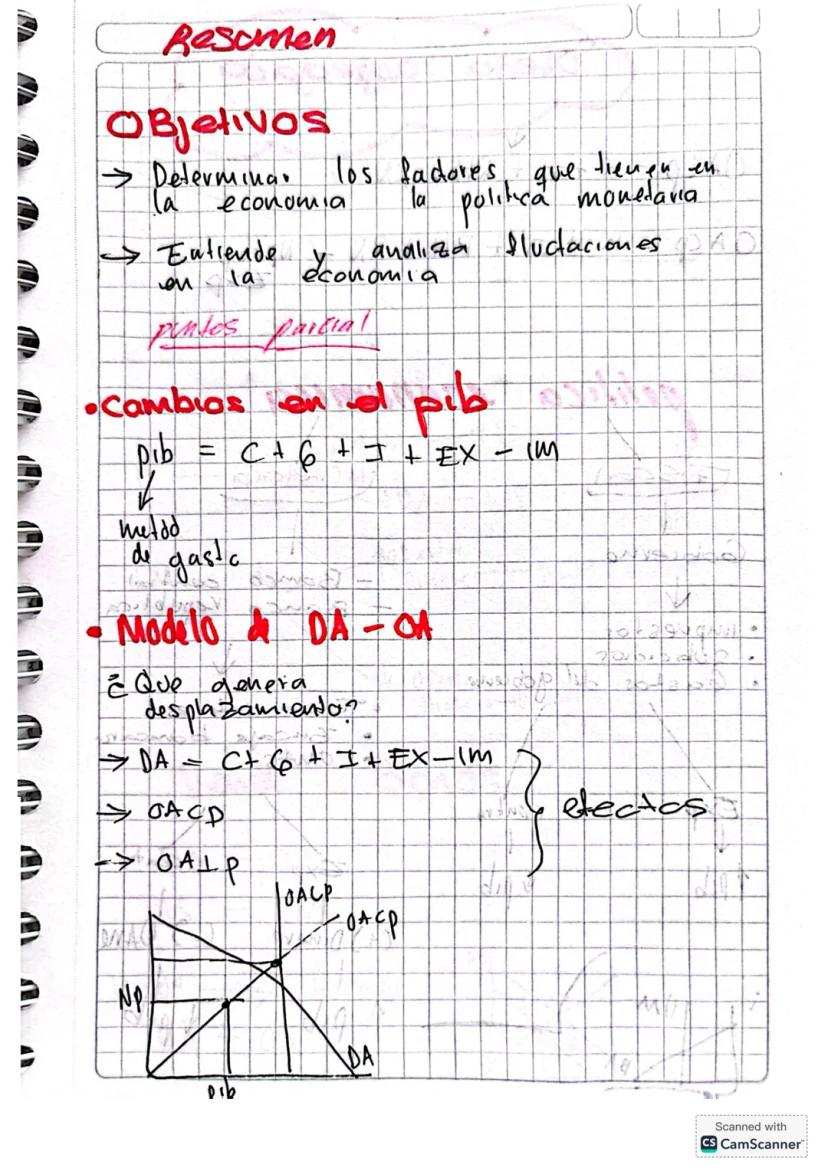 Resumen
OBjetivos
→ Determinar los factores que tienen en
la economia la politica monetaria
→ Entiende y analiza fluctaciones
en la economia
puntos parcial
• Cambios en el pib
pib = C + G + I + EX - IM
↓
metdo
de gasto
• Modelo de DA - OA
¿Que genera
desplazamiento?
→ DA = C + G + I + EX - IM
→ OACP
efectos
→ OALP
OALP
OACP
NP
DA
Pib
Scanned with
CS CamScanner